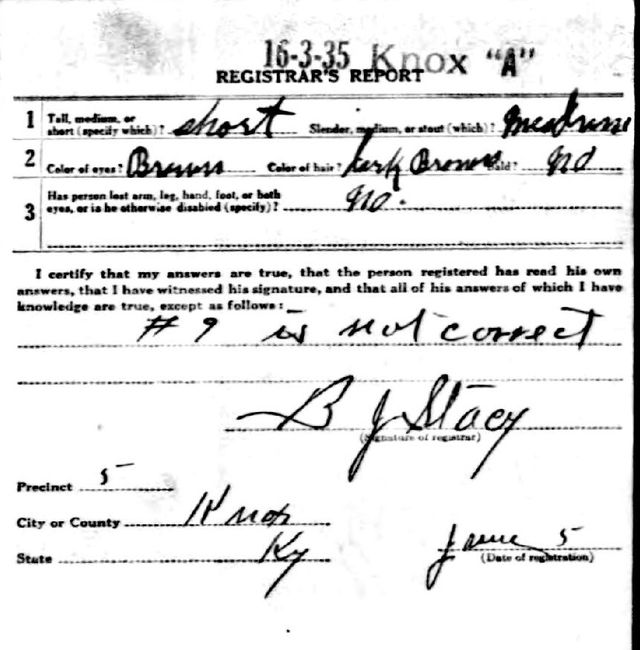 16-3-35 Knox "A"
REGISTRAR'S REPORT
1 Tall, medium, or short (specify which)? short Slender, medium, or stout (which)? Medium
2 Color of eyes? Brown Color of hair? Dark Brown Bald? No
3 Has person lost arm, leg, hand, foot, or both
eyes, or is he otherwise disabled (specify)? No.
I certify that my answers are true, that the person registered has read his own
answers, that I have witnessed his signature, and that all of his answers of which I have
knowledge are true, except as follows:
# 9 is not correct
B J Stacy
(Signature of registrar)
Precinct 5
City or County Knox
State Ky June 5
(Date of registration)